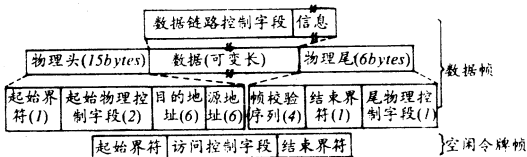 数据链路控制字段 信息
物理头(15bytes) 数据(可变长) 物理尾(6bytes)
数据帧
起始界符(1) 起始物理控制字段(2) 目的地址(6) 源地址(6) 帧校验序列(4) 结束界符(1) 尾物理控制字段(1)
起始界符 访问控制字段 结束界符
空闲令牌帧